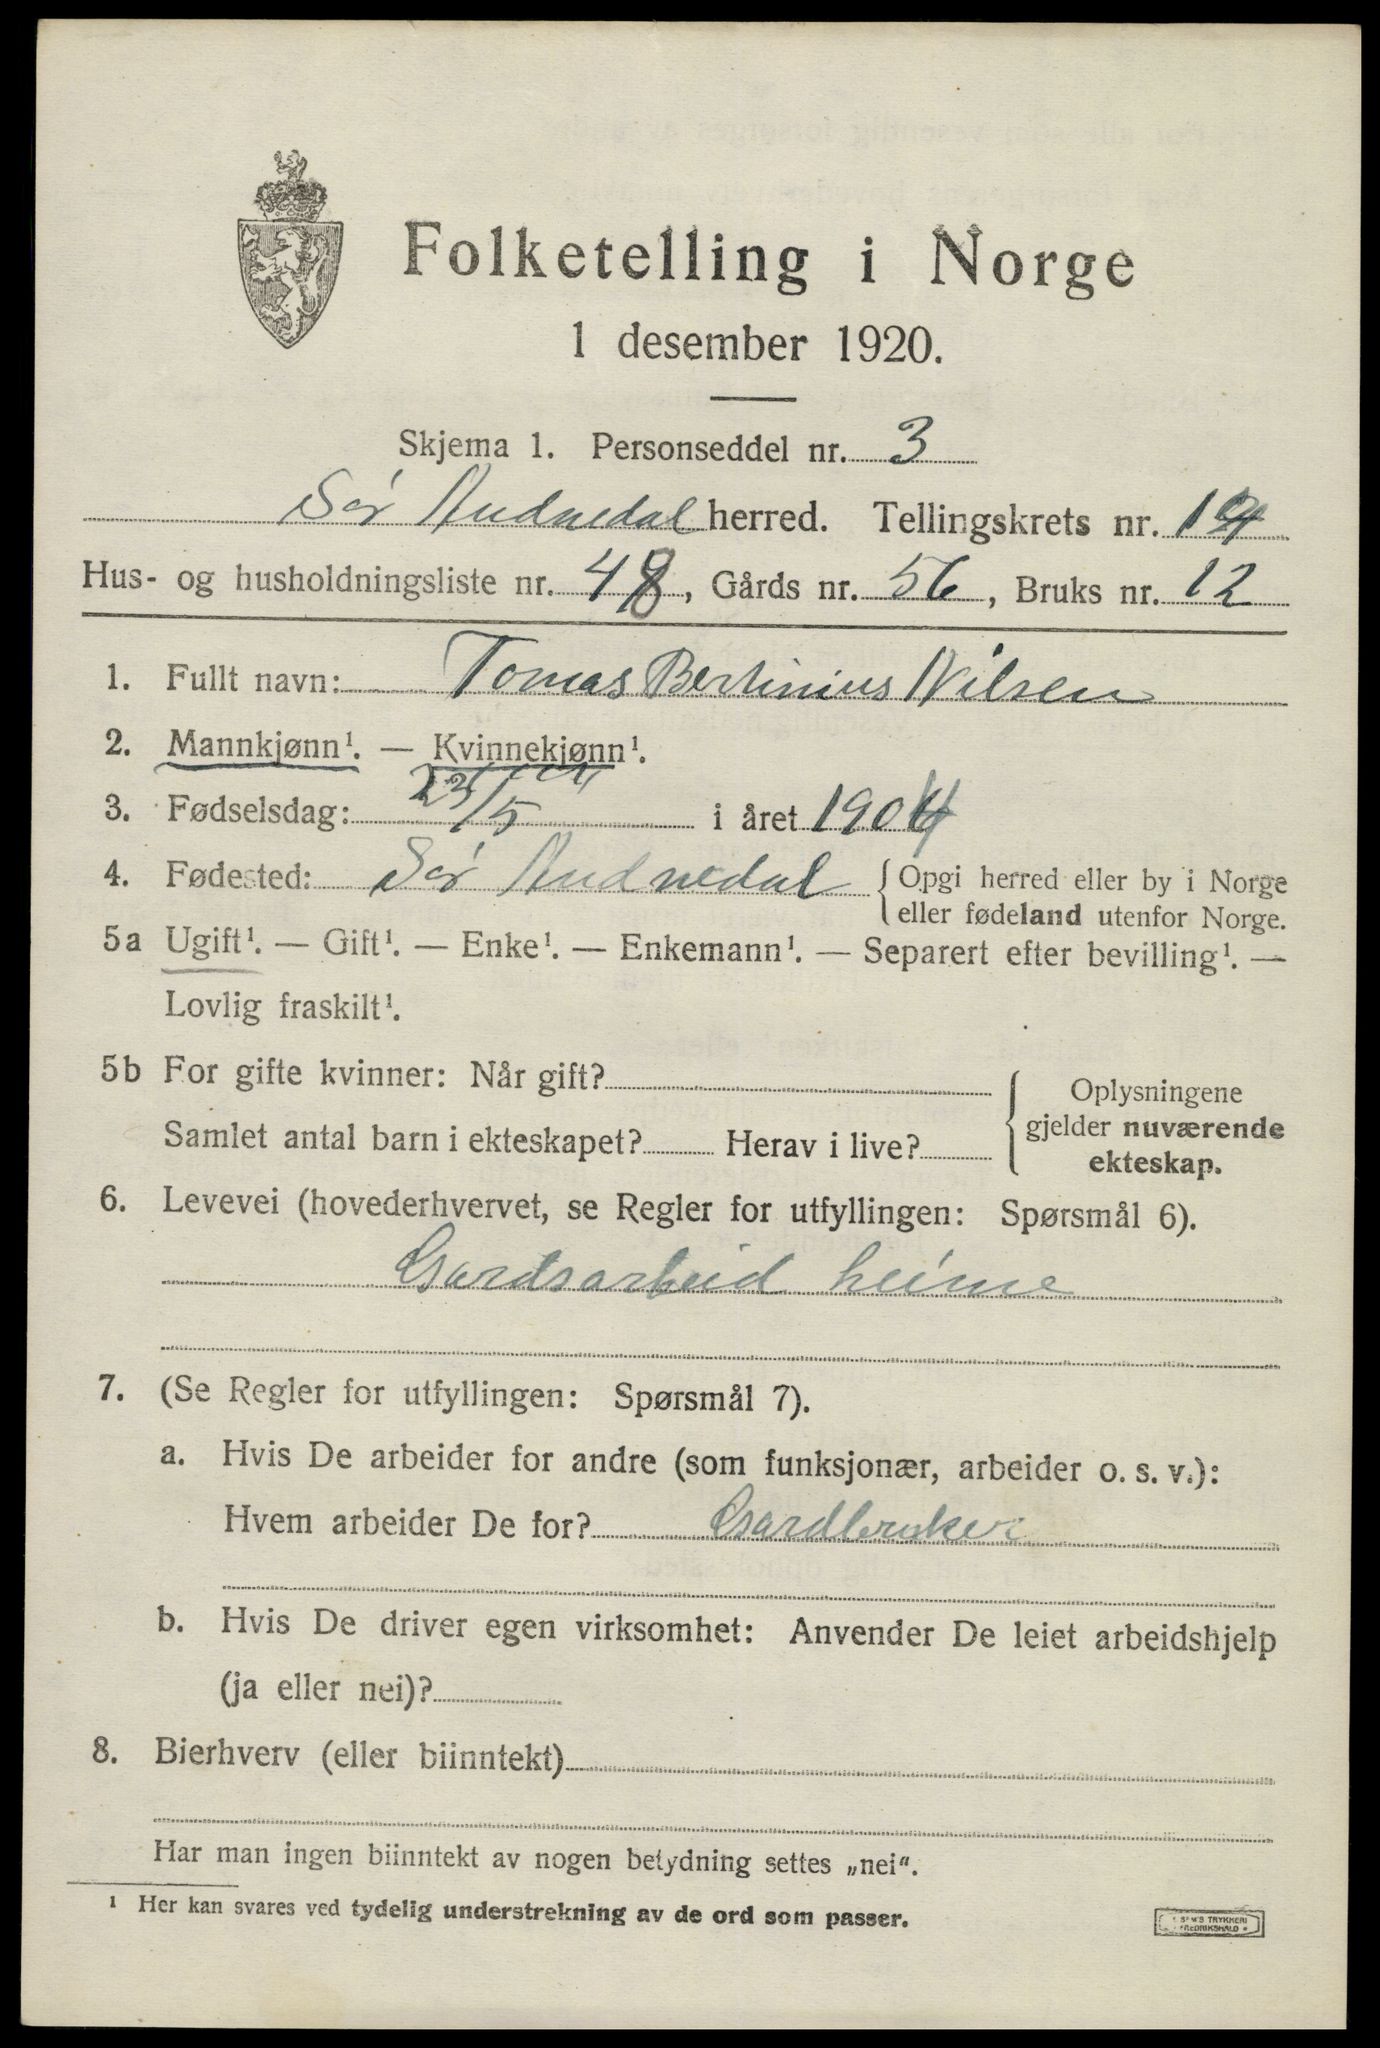 Folketelling i Norge
1 desember 1920.
Skjema 1. Personseddel nr. 3
Sør Audnedal herred. Tellingskrets nr.
Hus- og husholdningsliste nr. 48, Gårds nr. 56, Bruks nr. 12
1. Fullt navn: Tomas Bertinius Nilsen
2. Mannkjønn¹. — Kvinnekjønn¹.
3. Fødselsdag: 23/5 i året 1904
4. Fødested: Sør Audnedal { Opgi herred eller by i Norge
eller fødeland utenfor Norge.
5a Ugift¹. — Gift¹. — Enke¹. — Enkemann¹. — Separert efter bevilling¹. —
Lovlig fraskilt¹.
5b For gifte kvinner: Når gift? { Oplysningene
gjelder nuværende
ekteskap.
Samlet antal barn i ekteskapet? Herav i live?
6. Levevei (hovederhvervet, se Regler for utfyllingen: Spørsmål 6).
Gardsarbeid heime
7. (Se Regler for utfyllingen: Spørsmål 7).
a. Hvis De arbeider for andre (som funksjonær, arbeider o. s. v.):
Hvem arbeider De for? Gardbruker
b. Hvis De driver egen virksomhet: Anvender De leiet arbeidshjelp
(ja eller nei)?
8. Bierhverv (eller biinntekt)
Har man ingen biinntekt av nogen betydning settes „nei".
¹ Her kan svares ved tydelig understrekning av de ord som passer.
TRYKKERI
FREDRIKSHALD